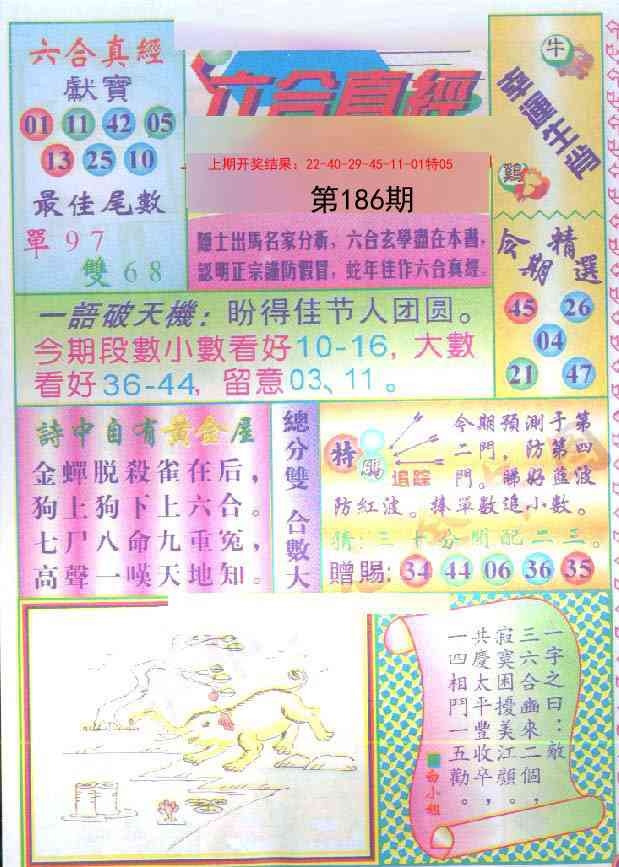 六合真經
獻寶
01 11 42 05
13 25 10
最佳尾數
單97
雙68
六合真經
上期开奖结果：22-40-29-45-11-01特05
第186期
隱士出馬名家分析，六合玄學盡在本書，
認明正宗謹防假冒，蛇年佳作六合真經。
牛
幸運生肖
鷄
今期
精選
45 26
04
21 47
一語破天機：盼得佳节人团圆。
今期段數小數看好10-16，大數
看好36-44，留意03、11。
詩中自有黄金屋
金蟬脱殺雀在后，
狗上狗下上六合。
七尸八命九重冤，
高聲一嘆天地知。
總分雙
合數大
特
追踪
今期預測于第
二門，防第四
門。睇好藍波
防紅波。捧單數追小數。
猜：三十分開配二三。
贈賜：34 44 06 36 35
一字之曰：敵
三六合幽來二個
寂寞困擾美江頭，
共慶太平豐收卒，
一四相門一五勸。
白小姐